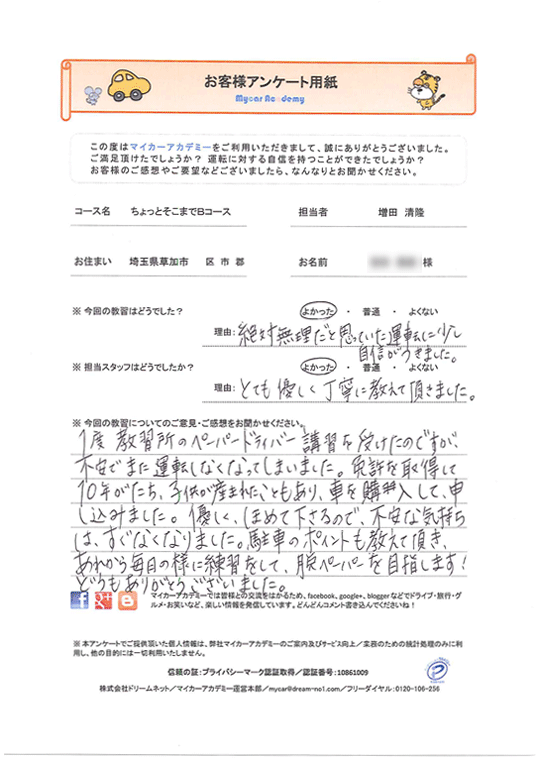 お客様アンケート用紙
Mycar Academy
この度はマイカーアカデミーをご利用いただきまして、誠にありがとうございました。
ご満足頂けたでしょうか？ 運転に対する自信を持つことができたでしょうか？
お客様のご感想やご要望などございましたら、なんなりとお聞かせください。
コース名 ちょっとそこまでBコース 担当者 増田 清隆
お住まい 埼玉県草加市 区 市 郡 お名前 様
※ 今回の教習はどうでした？ よかった ・ 普通 ・ よくない
理由: 絶対無理だと思っていた運転に少し
自信がつきました。
※ 担当スタッフはどうでしたか？ よかった ・ 普通 ・ よくない
理由: とても優しく丁寧に教えて頂きました。
※ 今回の教習についてのご意見・ご感想をお聞かせください。
1度 教習所のペーパードライバー講習を受けたのですが、
不安でまた運転しなくなってしまいました。免許を取得して
10年がたち、子供が産まれたこともあり、車を購入して、申
し込みました。優しく、ほめて下さるので、不安な気持ち
は、すぐなくなりました。駐車のポイントも教えて頂き、
あれから毎日の様に練習をして、脱ペーパーを目指します！
どうもありがとうございました。
マイカーアカデミーでは皆様との交流をはかるため、facebook、google+、bloggerなどでドライブ・旅行・グ
ルメ・お笑いなど、楽しい情報を発信しています。どんどんコメント書き込んでくださいね！
※ 本アンケートでご提供頂いた個人情報は、弊社マイカーアカデミーのご案内及びサービス向上／業務のための統計処理のみに利
用し、他の目的には一切利用いたしません。
信頼の証：プライバシーマーク認証取得／認証番号：10861009
株式会社ドリームネット／マイカーアカデミー運営本部／mycar@dream-no1.com／フリーダイヤル：0120-106-256